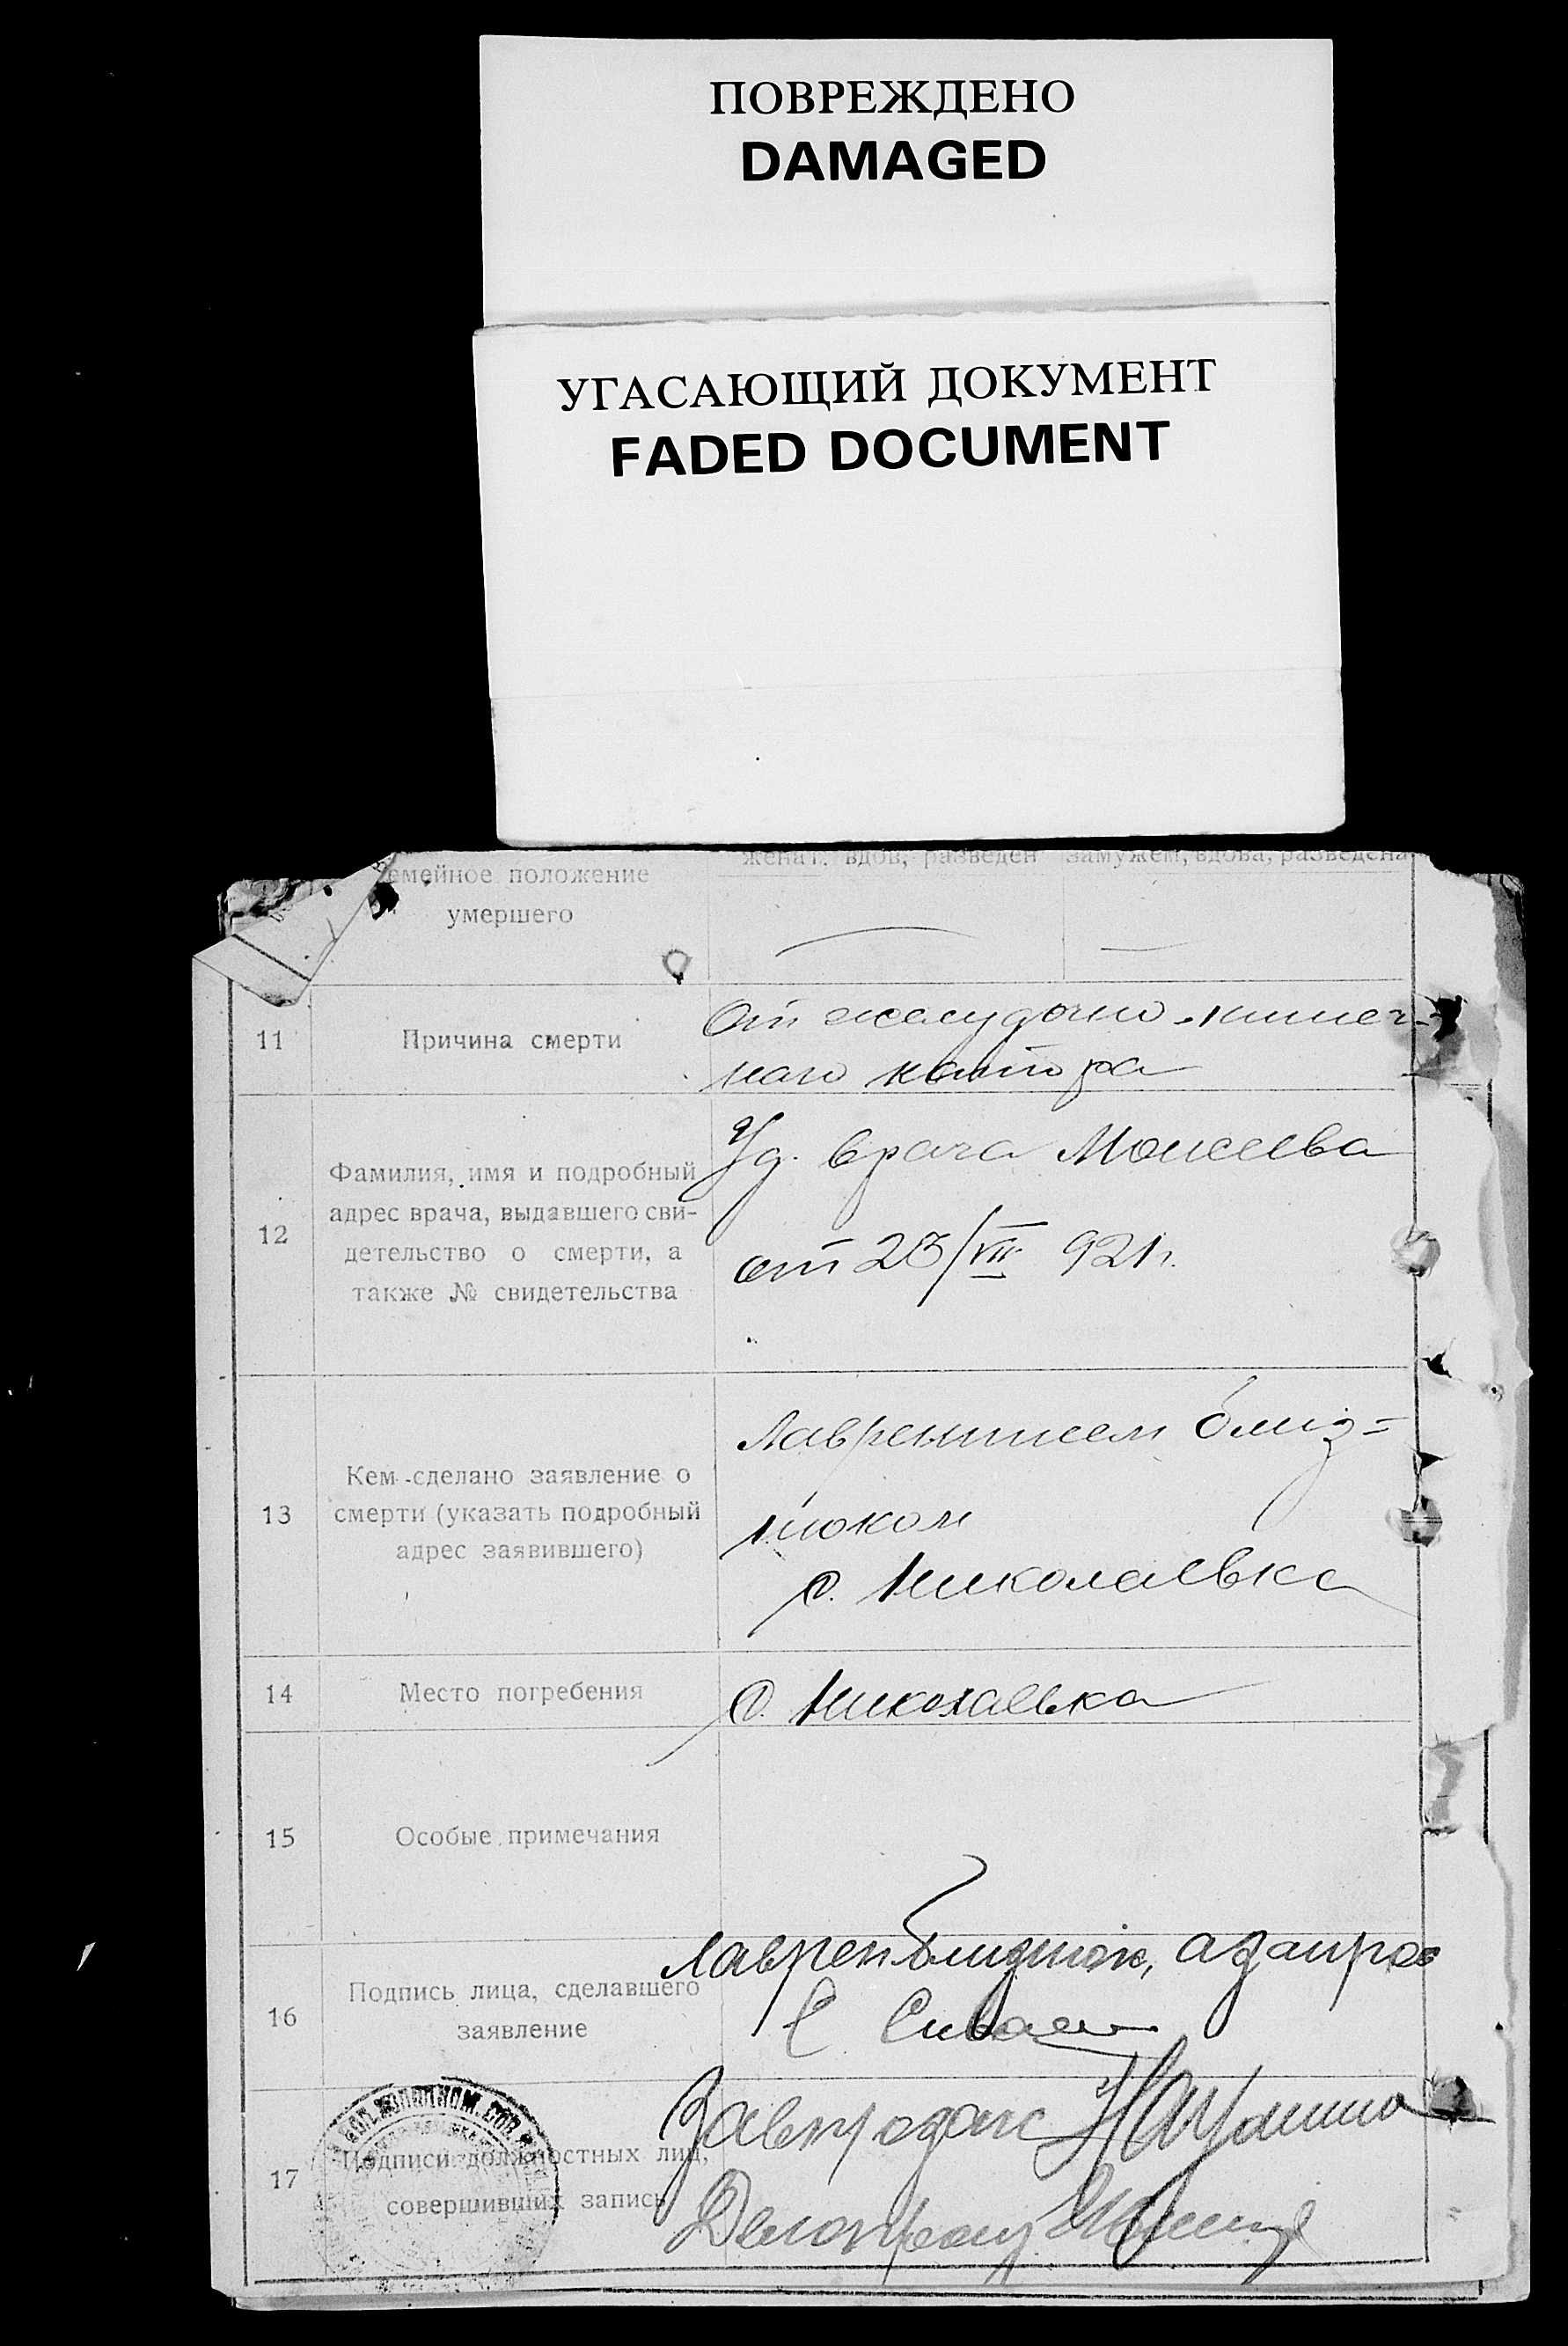 ПОВРЕЖДЕНО
DAMAGED
УГАСАЮЩИЙ ДОКУМЕНТ
FADED DOCUMENT
женат, вдов, разведен замужем, вдова, разведена
емейное положение
умершего
11 Причина смерти
От желудочно-кишеч-
ного катара
12
Фамилия, имя и подробный
адрес врача, выдавшего сви-
детельство о смерти, а
также № свидетельства
Уд. врача Моисеева
от 23/VII 921 г.
13
Кем сделано заявление о
смерти (указать подробный
адрес заявившего)
Лаврентием Близ-
нюком
с. Николаевка
14 Место погребения
с. Николаевка
15 Особые примечания
16
Подпись лица, сделавшего
заявление
Лаврен Близнюк, а за
17
Подписи должностных лиц,
совершивших запись
Завподзагс
Делопроиз